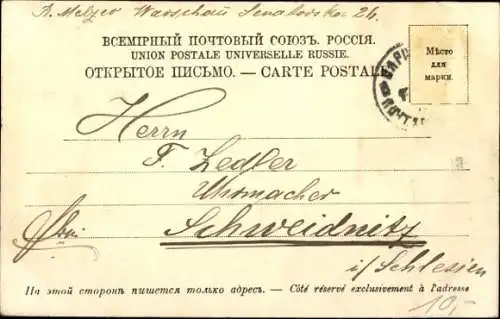 R. Melzer Warschau Senatorska 26.
ВСЕМІРНЫЙ ПОЧТОВЫЙ СОЮЗЪ. РОССІЯ.
UNION POSTALE UNIVERSELLE RUSSIE.
ОТКРЫТОЕ ПИСЬМО. — CARTE POSTALE
Мѣсто
для
марки.
Herrn
F. Zedler
Uhrmacher
Schweidnitz
i/ Schlesien
На этой сторонѣ пишется только адресъ. — Côté réservé exclusivement à l'adresse
10,-